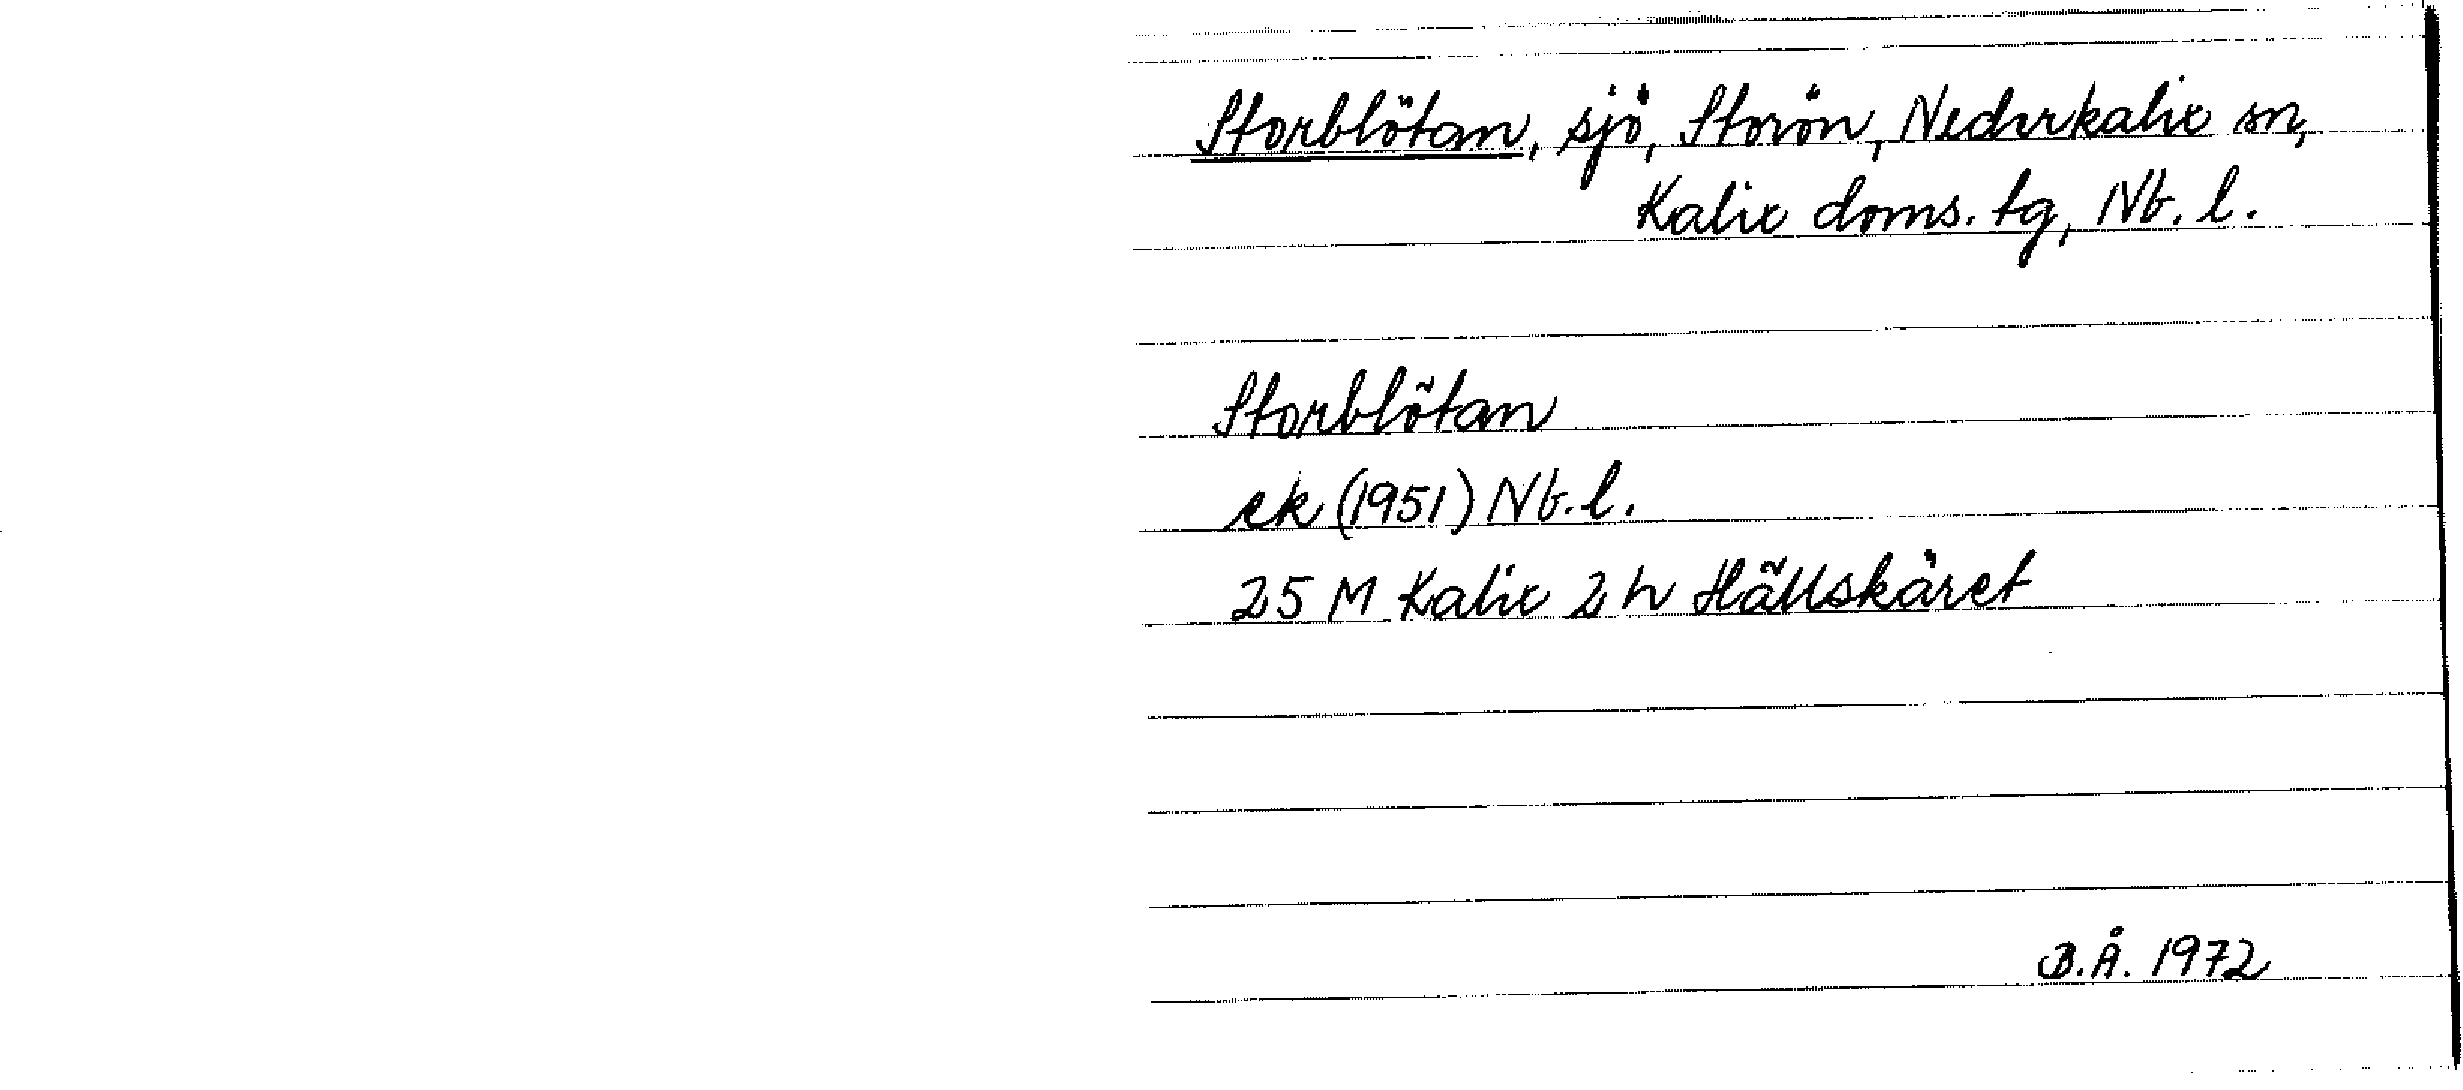 Storblötan, sjö, Storön, Nederkalix sn,
Kalix doms. tg, Nb. l.
Storblötan
ek (1951) Nb. l.
25 M Kalix 2 h Hällskäret
B.Å. 1972